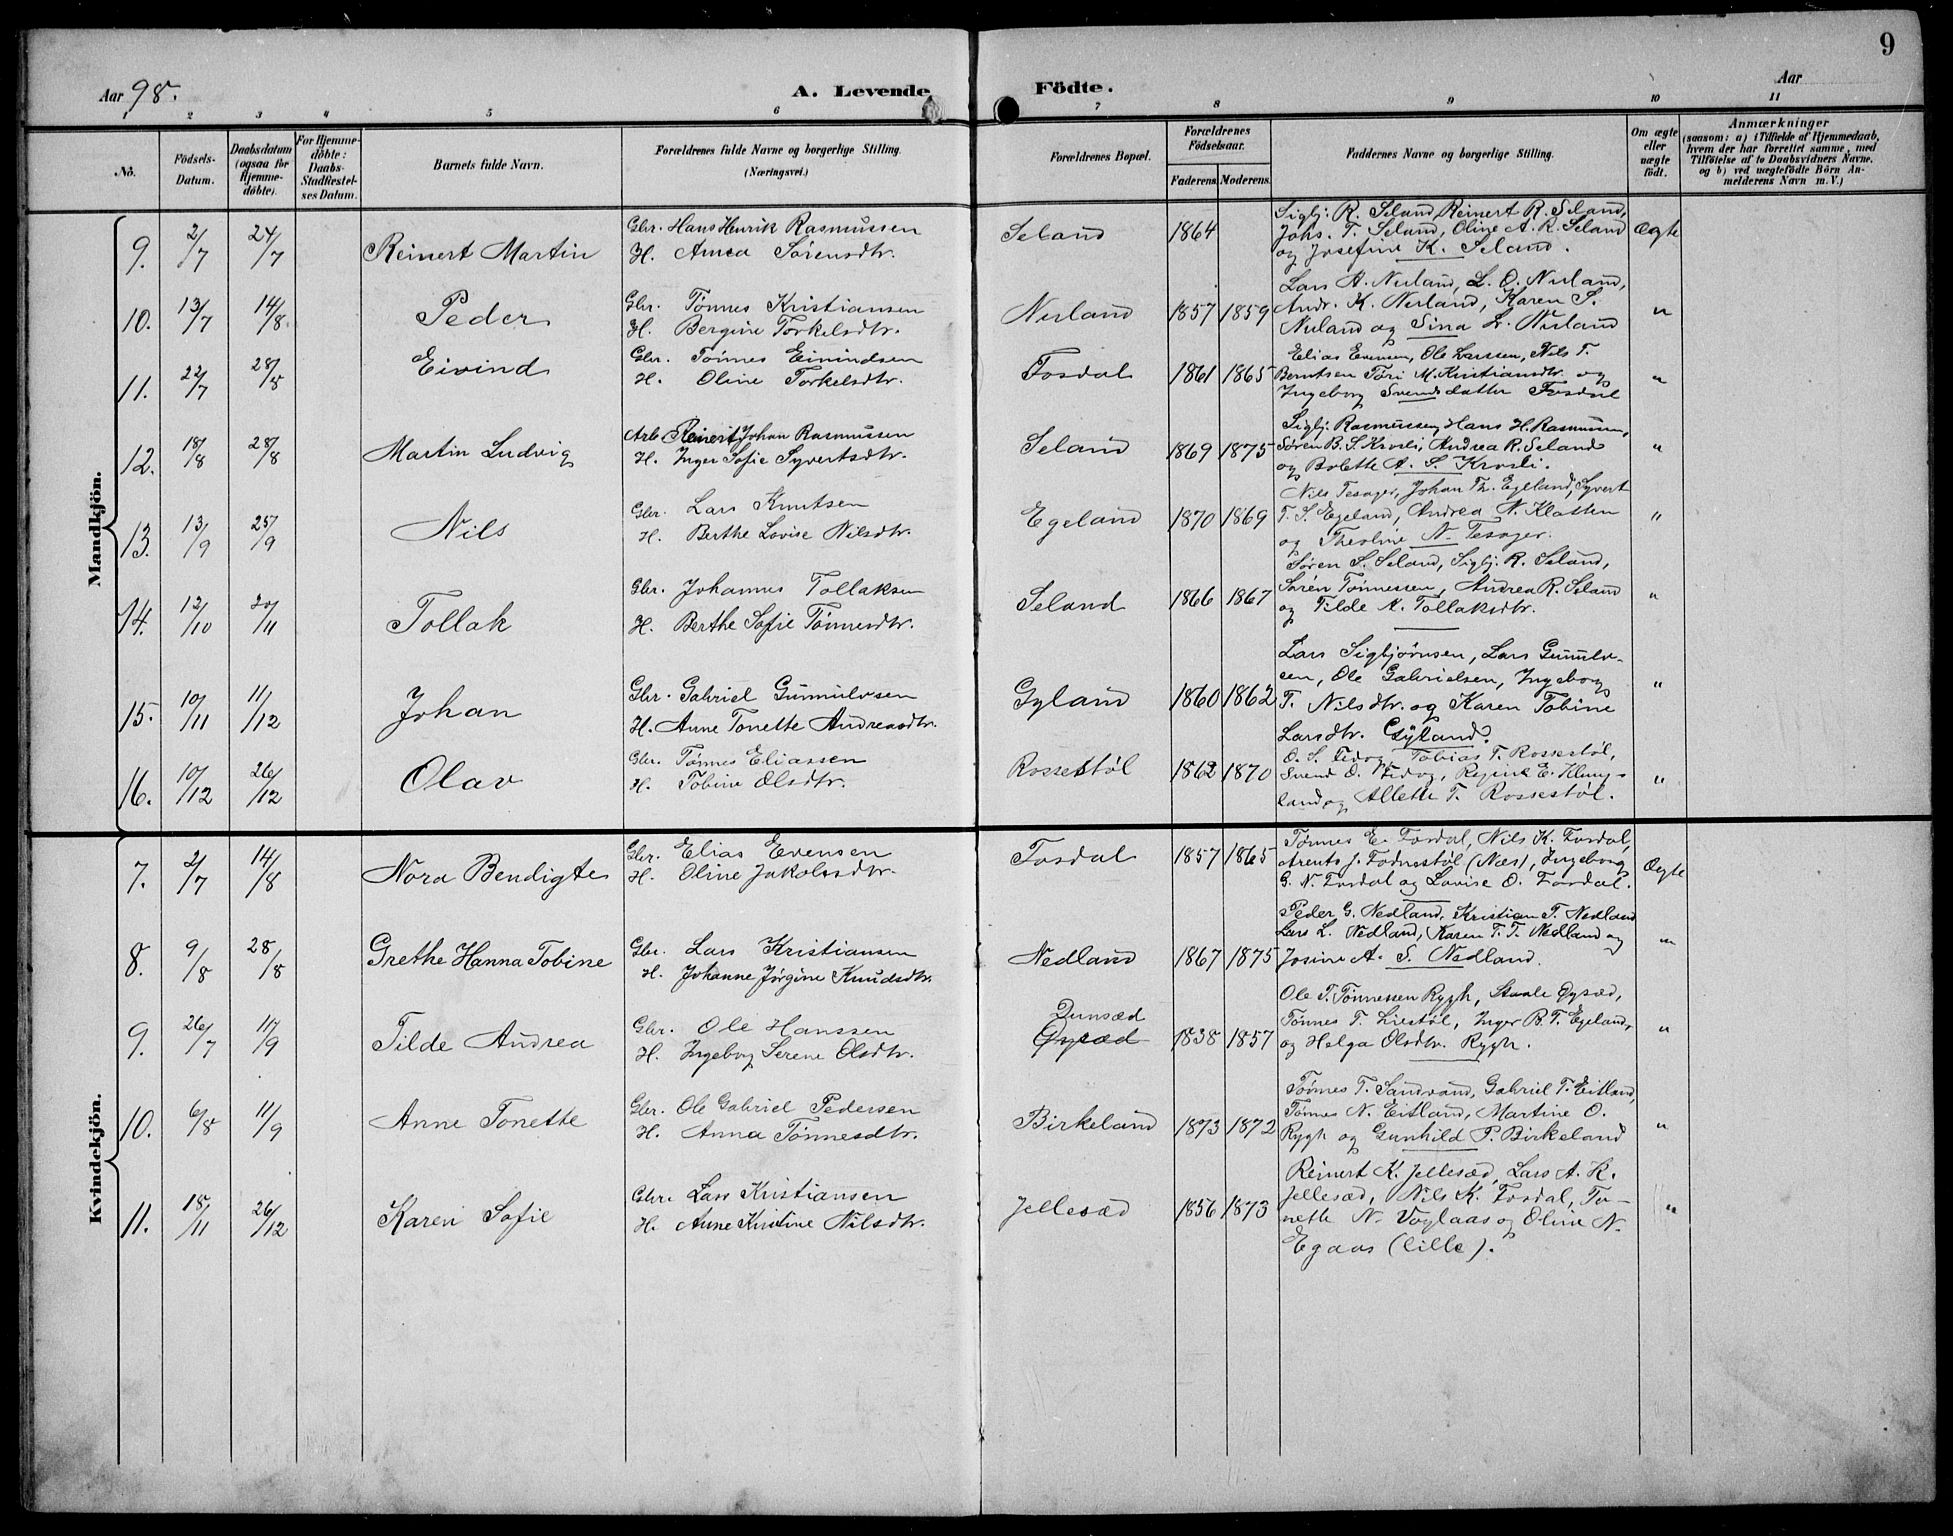 9
Aar 98. A. Levende Födte. Aar
1 2 3 4 5 6 7 8 9 10 11
No.
Födsels-
Datum.
Daabsdatum
(ogsaa for
Hjemme-
döbte).
For Hjemme-
döbte:
Daabs-
Stadfæstel-
ses Datum.
Barnets fulde Navn.
Forældrenes fulde Navne og borgerlige Stilling.
(Næringsvei.)
Forældrenes Bopæl.
Forældrenes
Födselsaar.
Faderens. Moderens.
Faddernes Navne og borgerlige Stilling.
Om ægte
eller
uægte
födt.
Anmærkninger
(saasom: a) i Tilfælde af Hjemmedaab,
hvem der har forrettet samme, med
Tilföielse af to Daabsvidners Navne.
og b) ved uægtefödte Börn An-
melderens Navn m. V.)
Mandkjön.
9. 2/7 24/7 Reinert Martin
Gbr. Hans Henrik Rasmussen
H. Amea Sørensdtr.
Seland 1864
Sigbj. R. Seland, Reinert R. Seland,
Johs. T. Seland, Oline A. R. Seland
og Josefine K. Seland.
Ægte
10. 13/7 14/8. Peder
Gbr. Tønnes Kristiansen
H. Bergine Torkelsdtr.
Nuland 1857 1859
Lars A. Nuland, L. O. Nuland,
Andr. K. Nuland, Karen S.
Nuland og Sina Lr. Nuland
"
11. 22/7 28/8 Eivind
Gbr. Tønnes Eivindsen
H. Oline Torkelsdtr.
Fosdal 1861 1865
Elias Evensen, Ole Larssen, Nils T.
Berntsen Töri M. Kristiansdtr. og
Ingeborg Svendsdatter Fosdal
"
12. 18/8 28/8 Martin Ludvig
Arb. Reinert Johan Rasmussen
H. Inger Sofie Syvertsdtr.
Seland 1869 1875
Sigbj. Rasmussen, Hans H. Rasmussen,
Søren B. S. Krosli, Andrea R. Seland
og Bolette A. S. Krosli.
"
13. 13/9 25/9 Nils
Gbr. Lars Knutsen
H. Berthe Lovise Nilsdtr.
Egeland 1870 1869
Nils Tesager, Johan Th. Egeland, Syvert
T. S. Egeland, Andrea N. Kletten
og Theoline N. Tesager.
"
14. 12/10 20/11 Tollak
Gbr. Johannes Tollaksen
H. Berthe Sofie Tønnesdtr.
Seland 1866 1867
Søren S. Seland, Sigbj. R. Seland,
Søren Tønnessen, Andrea R. Seland
og Tilde N. Tollaksdtr.
"
15. 10/11 11/12 Johan
Gbr. Gabriel Gunnulvsen
H. Anne Tonette Andreasdtr.
Gyland 1860 1862
Lars Sigbjørnsen, Lars Gunnulv-
sen, Ole Gabrielsen, Ingeborg
T. Nilsdtr. og Karen Tobine
Larsdtr. Gyland.
"
16. 10/12 26/12 Olav
Gbr. Tønnes Eliassen
H. Tobine Olsdtr.
Rossestøl 1862 1870
O. S. Fedog, Tobias T. Rossestøl,
Svend O. Fedog, Regine E. Klung-
land og Allette T. Rossestøl.
"
Kvindekjön.
7. 2/7 14/8 Nora Bendigte
Gbr. Elias Evensen
H. Oline Jakobsdtr.
Fosdal 1857 1865
Tønnes E. Fosdal, Nils K. Fosdal,
Arents J. Fodnestøl (Næs), Ingeborg
G. N. Fosdal og Lovise O. Fosdal.
Ægte
8. 9/8 28/8 Grethe Hanna Tobine
Gbr. Lars Kristiansen
H. Johanne Jørgine Knudsdtr.
Nedland 1867 1875
Peder G. Nedland, Kristian T. Nedland
Lars L. Nedland, Karen T. T. Nedland og
Josine A. S. Nedland.
"
9. 26/7 11/9 Tilde Andrea
Gbr. Ole Hanssen
H. Ingebog Serene Olsdtr.
Dunsæd
Gysæd 1838 1857
Ole T. Tønnessen Rygh, Staale Gysæd,
Tønnes T. Liestøl, Inger B. T. Egeland,
og Helga Olsdtr. Rygh.
"
10. 6/8 11/9 Anne Tonette
Gbr. Ole Gabriel Pedersen
H. Anna Tønnesdtr.
Birkeland 1873 1872
Tønnes T. Sandvand, Gabriel T. Eitland,
Tønnes N. Eitland, Martine O.
Rygh og Gunhild P. Birkeland
"
11. 18/11 26/12 Karen Sofie
Gbr. Lars Kristiansen
H. Anne Kristine Nilsdtr.
Jellesæd 1856 1873
Reinert K. Jellesæd, Lars A. K.
Jellesæd, Nils K. Fosdal, To-
nette N. Voglaas og Oline N.
Egaas (Lille).
"